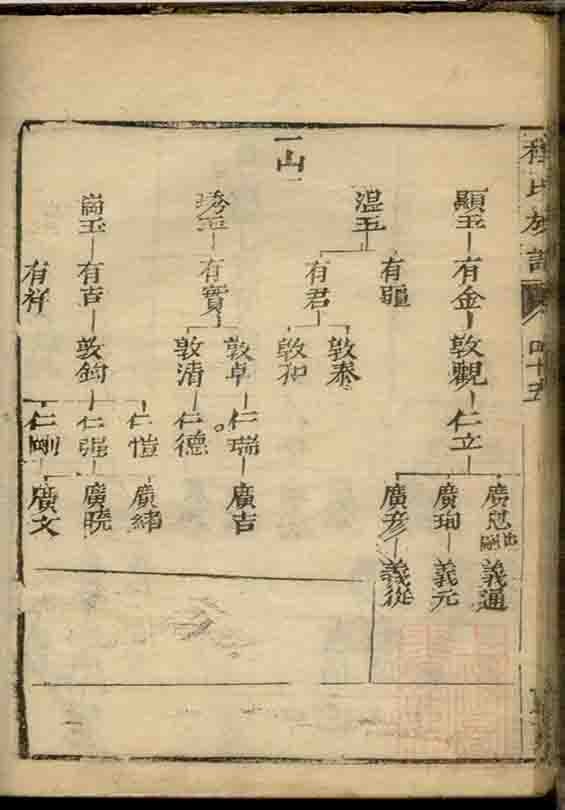 程氏族譜
四十五
一山
顯玉
有金
敦觀
仁立
廣冠
出嗣
義通
廣珣
義元
廣彥
義從
温玉
有疆
有君
敦泰
敦和
琇玉
有實
敦卓
仁瑞
廣吉
敦清
仁德
崗玉
有吉
敦鈞
仁愷
廣緒
仁强
廣曉
仁剛
廣文
有祥